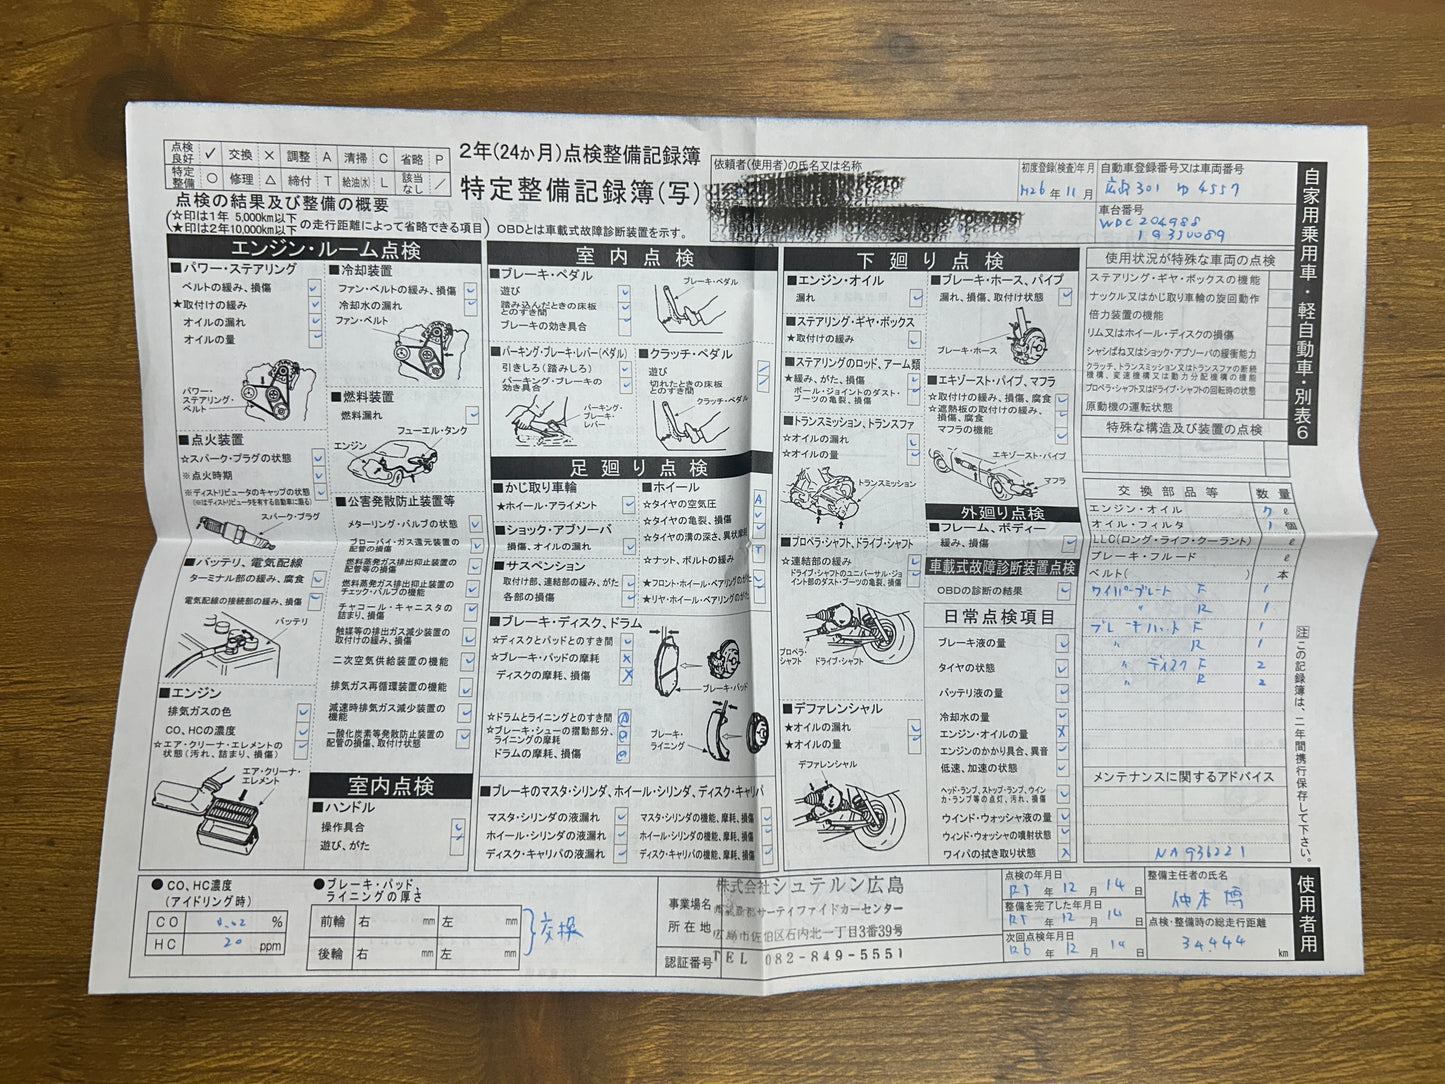 点検良好 ✓ 交換 × 調整 A 清掃 C 省略 P
特定整備 ○ 修理 △ 締付 T 給油(水) L 該当なし ／
2年(24か月)点検整備記録簿
特定整備記録簿(写)
点検の結果及び整備の概要
(☆印は1年 5,000km以下
★印は2年10,000km以下 の走行距離によって省略できる項目)
OBDとは車載式故障診断装置を示す。
依頼者(使用者)の氏名又は名称
初度登録(検査)年月
H26年11月
自動車登録番号又は車両番号
広島301 ゆ4557
車台番号
WDC204988
1G330089
自家用乗用車・軽自動車・別表6
エンジン・ルーム点検
■パワー・ステアリング
ベルトの緩み、損傷
★取付けの緩み
オイルの漏れ
オイルの量
パワー・ステアリング・ベルト
■点火装置
☆スパーク・プラグの状態
※点火時期
※ディストリビュータのキャップの状態
(※はディストリビュータを有する自動車に限る)
スパーク・プラグ
■バッテリ、電気配線
ターミナル部の緩み、腐食
電気配線の接続部の緩み、損傷
バッテリ
■エンジン
排気ガスの色
CO、HCの濃度
☆エア・クリーナ・エレメントの状態(汚れ、詰まり、損傷)
エア・クリーナ・エレメント
■冷却装置
ファン・ベルトの緩み、損傷
冷却水の漏れ
ファン・ベルト
■燃料装置
燃料漏れ
フューエル・タンク
エンジン
■公害発散防止装置等
メターリング・バルブの状態
ブローバイ・ガス還元装置の配管の損傷
燃料蒸発ガス排出抑止装置の配管等の損傷
燃料蒸発ガス排出抑止装置のチェック・バルブの機能
チャコール・キャニスタの詰まり、損傷
触媒等の排出ガス減少装置の取付けの緩み、損傷
二次空気供給装置の機能
排気ガス再循環装置の機能
減速時排気ガス減少装置の機能
一酸化炭素等発散防止装置の配管の損傷、取付け状態
室内点検
■ハンドル
操作具合
遊び、がた
室内点検
■ブレーキ・ペダル
遊び
踏み込んだときの床板とのすき間
ブレーキの効き具合
ブレーキ・ペダル
■パーキング・ブレーキ・レバー(ペダル)
引きしろ(踏みしろ)
パーキング・ブレーキの効き具合
パーキング・ブレーキ・レバー
■クラッチ・ペダル
遊び
切れたときの床板とのすき間
クラッチ・ペダル
足廻り点検
■かじ取り車輪
★ホイール・アライメント
■ショック・アブソーバ
損傷、オイルの漏れ
■サスペンション
取付け部、連結部の緩み、がた
各部の損傷
■ホイール
☆タイヤの空気圧 A
☆タイヤの亀裂、損傷
☆タイヤの溝の深さ、異状摩耗
☆ナット、ボルトの緩み T
★フロント・ホイール・ベアリングのがた
★リヤ・ホイール・ベアリングのがた
■ブレーキ・ディスク、ドラム
☆ディスクとパッドとのすき間
☆ブレーキ・パッドの摩耗 ×
ディスクの摩耗、損傷 ×
ブレーキ・パッド
☆ドラムとライニングとのすき間
☆ブレーキ・シューの摺動部分、ライニングの摩耗
ドラムの摩耗、損傷
ブレーキ・ライニング
■ブレーキのマスタ・シリンダ、ホイール・シリンダ、ディスク・キャリパ
マスタ・シリンダの液漏れ
ホイール・シリンダの液漏れ
ディスク・キャリパの液漏れ
マスタ・シリンダの機能、摩耗、損傷
ホイール・シリンダの機能、摩耗、損傷
ディスク・キャリパの機能、摩耗、損傷
下廻り点検
■エンジン・オイル
漏れ
■ステアリング・ギヤ・ボックス
★取付けの緩み
■ステアリングのロッド、アーム類
★緩み、がた、損傷
ボール・ジョイントのダスト・ブーツの亀裂、損傷
■トランスミッション、トランスファ
☆オイルの漏れ
☆オイルの量
トランスミッション
■プロペラ・シャフト、ドライブ・シャフト
☆連結部の緩み
ドライブ・シャフトのユニバーサル・ジョイント部のダスト・ブーツの亀裂、損傷
プロペラ・シャフト
ドライブ・シャフト
■デファレンシャル
★オイルの漏れ
★オイルの量
デファレンシャル
■ブレーキ・ホース、パイプ
漏れ、損傷、取付け状態
ブレーキ・ホース
■エキゾースト・パイプ、マフラ
★取付けの緩み、損傷、腐食
☆遮熱板の取付けの緩み、損傷、腐食
マフラの機能
エキゾースト・パイプ
マフラ
外廻り点検
■フレーム、ボディー
緩み、損傷
車載式故障診断装置点検
OBDの診断の結果
日常点検項目
ブレーキ液の量
タイヤの状態
バッテリ液の量
冷却水の量
エンジン・オイルの量 ×
エンジンのかかり具合、異音
低速、加速の状態
ヘッド・ランプ、ストップ・ランプ、ウインカ・ランプ等の点灯、汚れ、損傷
ウインド・ウォッシャ液の量
ウィンド・ウォッシャの噴射状態
ワイパの拭き取り状態 ×
使用状況が特殊な車両の点検
ステアリング・ギヤ・ボックスの機能
ナックル又はかじ取り車輪の旋回動作
倍力装置の機能
リム又はホイール・ディスクの損傷
シャシばね又はショック・アブソーバの緩衝能力
クラッチ、トランスミッション又はトランスファの断続機構、変速機構又は動力分配機構の機能
プロペラ・シャフト又はドライブ・シャフトの回転時の状態
原動機の運転状態
特殊な構造及び装置の点検
交換部品等 数量
エンジン・オイル 7 ℓ
オイル・フィルタ 1 個
LLC(ロング・ライフ・クーラント) ℓ
ブレーキ・フルード ℓ
ベルト( ) 本
ワイパーブレード F 1
〃 R 1
ブレーキパット F 1
〃 R 1
〃 ディスク F 2
〃 R 2
メンテナンスに関するアドバイス
NA936221
注この記録簿は、二年間携行保存して下さい。
● CO、HC濃度
(アイドリング時)
CO 0.02 %
HC 20 ppm
● ブレーキ・パッド、ライニングの厚さ
前輪 右 mm 左 mm
後輪 右 mm 左 mm
交換
事業場名 株式会社シュテルン広島
サーティファイドカーセンター
所在地 広島市佐伯区石内北一丁目3番39号
認証番号 TEL 082-849-5551
点検の年月日
R5年12月14日
整備を完了した年月日
R5年12月14日
次回点検年月日
R6年12月14日
整備主任者の氏名
仲本 博
点検・整備時の総走行距離
34,444 km
使用者用